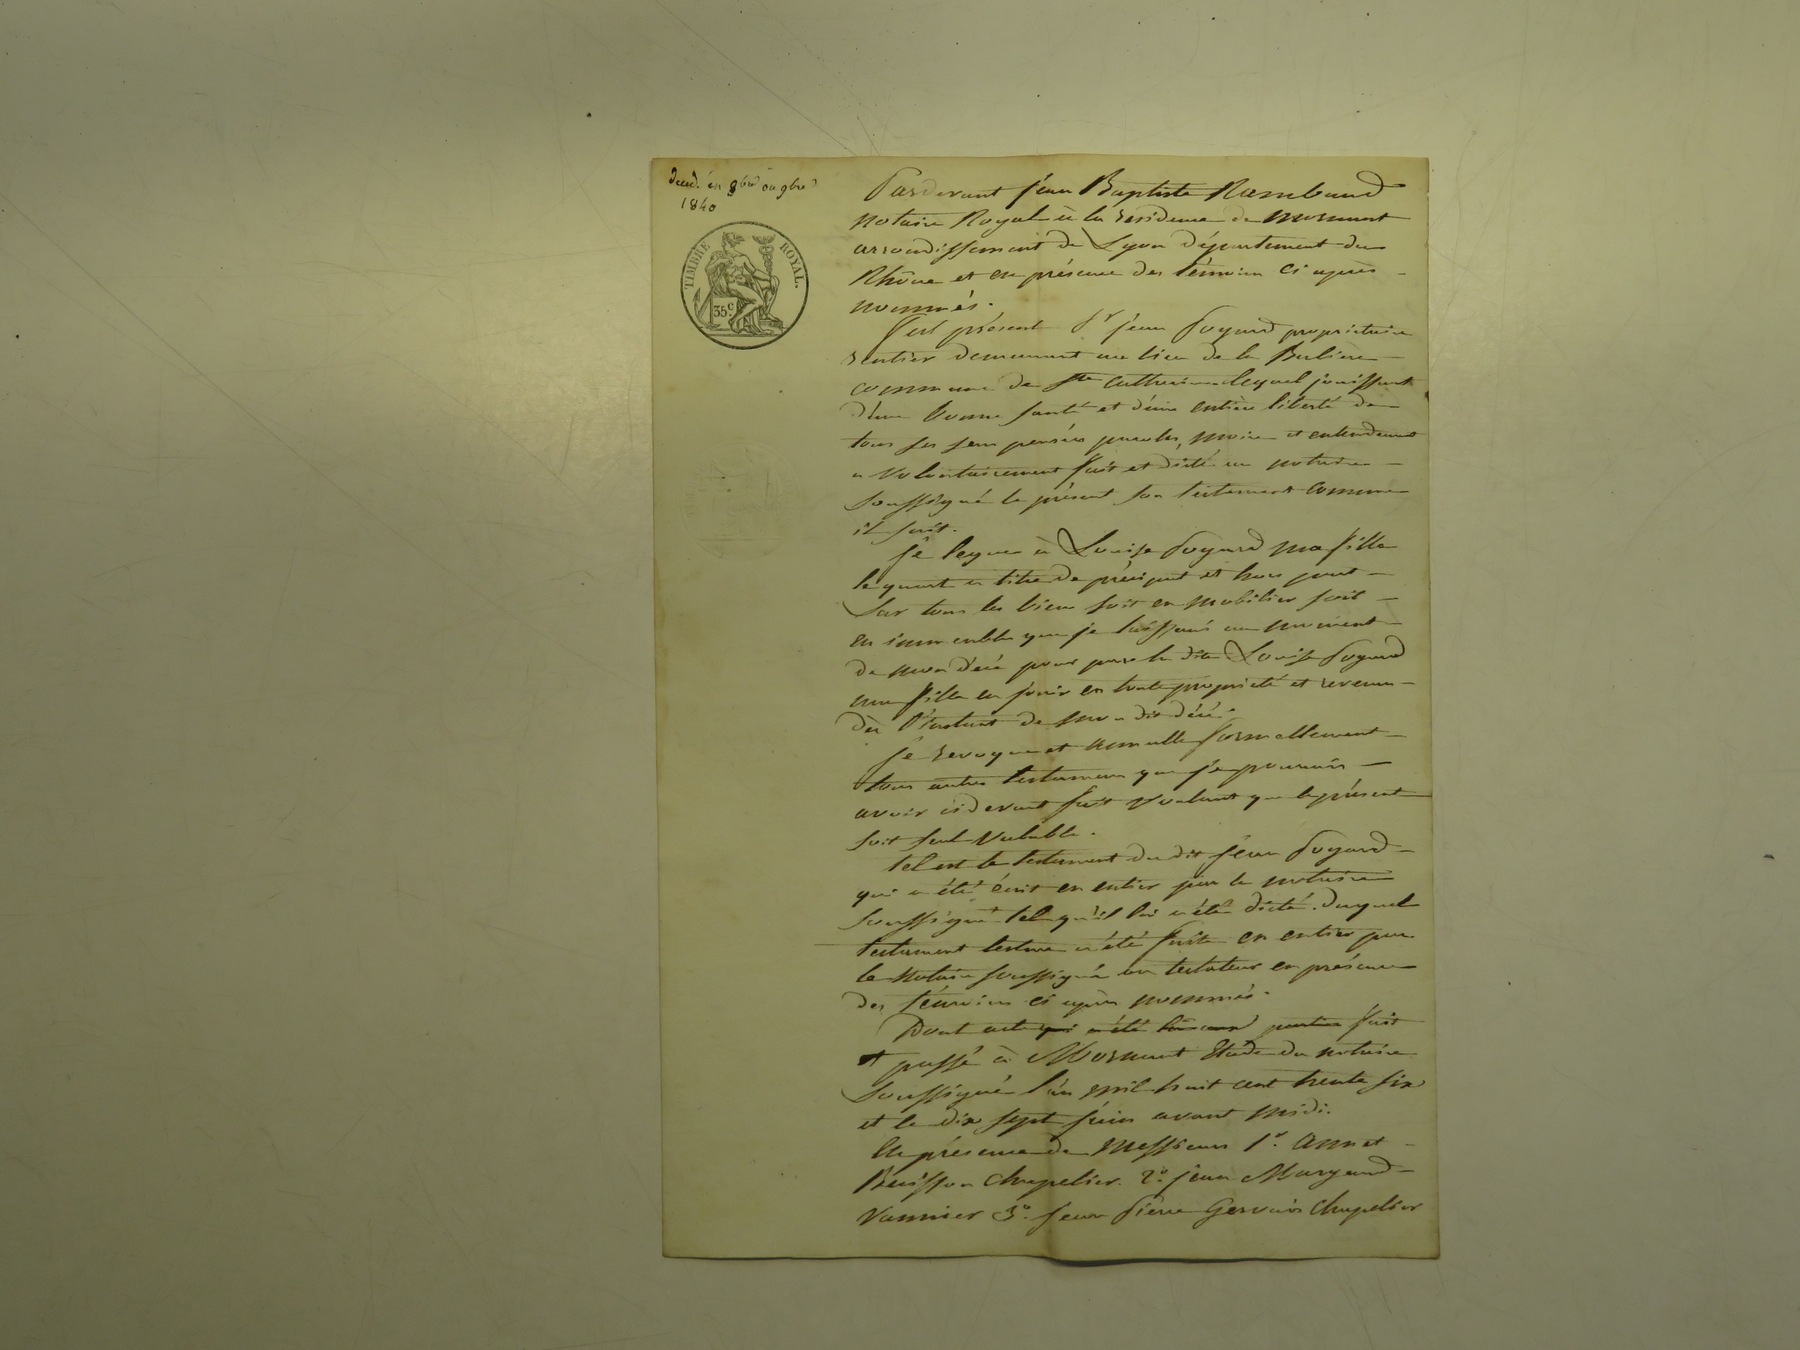 Déced. en 8bre ou 9bre
1840
TIMBRE ROYAL.
35c
Pardevant jean Baptiste Rambaud
notaire Royal à la residence de mornant
arrondissement de Lyon département du
Rhône et en présence des témoins ci après
nommés.
fut présent Sr jean Poyard propriétaire
rentier demeurant au lieu de la
commune de Ste catherine lequel jouissant
d'une bonne santé et d'une entière liberté de
tous ses sens pensées paroles, moire et entendement
a volontairement fait et dicté au notaire
soussigné le présent son testament comme
il suit.
je legue à Louise Poyard ma fille
le quart à titre de préciput et hors part
sur tous les biens soit en mobilier soit
en immeubles que je laisserai au moment
de mon décé pour par la dite Louise Poyard
ma fille en jouir en toute propriété et revenu
dès l'instant de mon dit décé.
je revoque et annulle formellement
tous autres testamens que je pourrais
avoir cidevant fait voulant que le présent
soit seul valable.
tel est le testament du dit jean Poyard
qui a été écrit en entier par le notaire
soussigné tel qu'il lui a été dicté. duquel
testament lecture a été faite en entier par
le notaire soussigné au testateur en présence
des témoins ci après nommés.
Dont acte qui a été fait
et passé à Mornant Etude du notaire
soussigné l'an mil huit cent trente six
et le dix sept juin avant midi.
En présence de messieurs 1º. annet
Buisson chapelier. 2º. jean Margand
vannier 3º. jean pierre Gervais chapelier